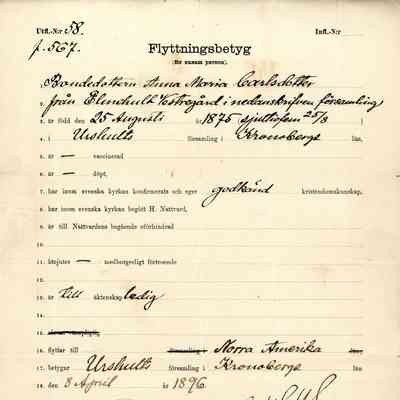 Utfl.-N:r 58. Infl.-N:r
p. 567.
Flyttningsbetyg
(för ensam person).
1. Bondedottern Anna Maria Carlsdotter
2. från Elmhult Vestregård i nedanskrifven församling
3. är född den 25 Augusti år 1875 sjuttiofem 25/8 )
4. i Urshults församling i Kronobergs län,
5. är — vaccinerad
6. är — döpt,
7. har inom svenska kyrkan konfirmerats och eger godkänd kristendomskunskap,
8. har inom svenska kyrkan begått H. Nattvard,
9. är till Nattvardens begående oförhindrad
10.
11. åtnjuter — medborgerligt förtroende
12.
13. är till äktenskap ledig
14.
15.
16. flyttar till församling i Norra Amerika län
17. betygar Urshults församling i Kronobergs län
18. den 3 April år 1896.